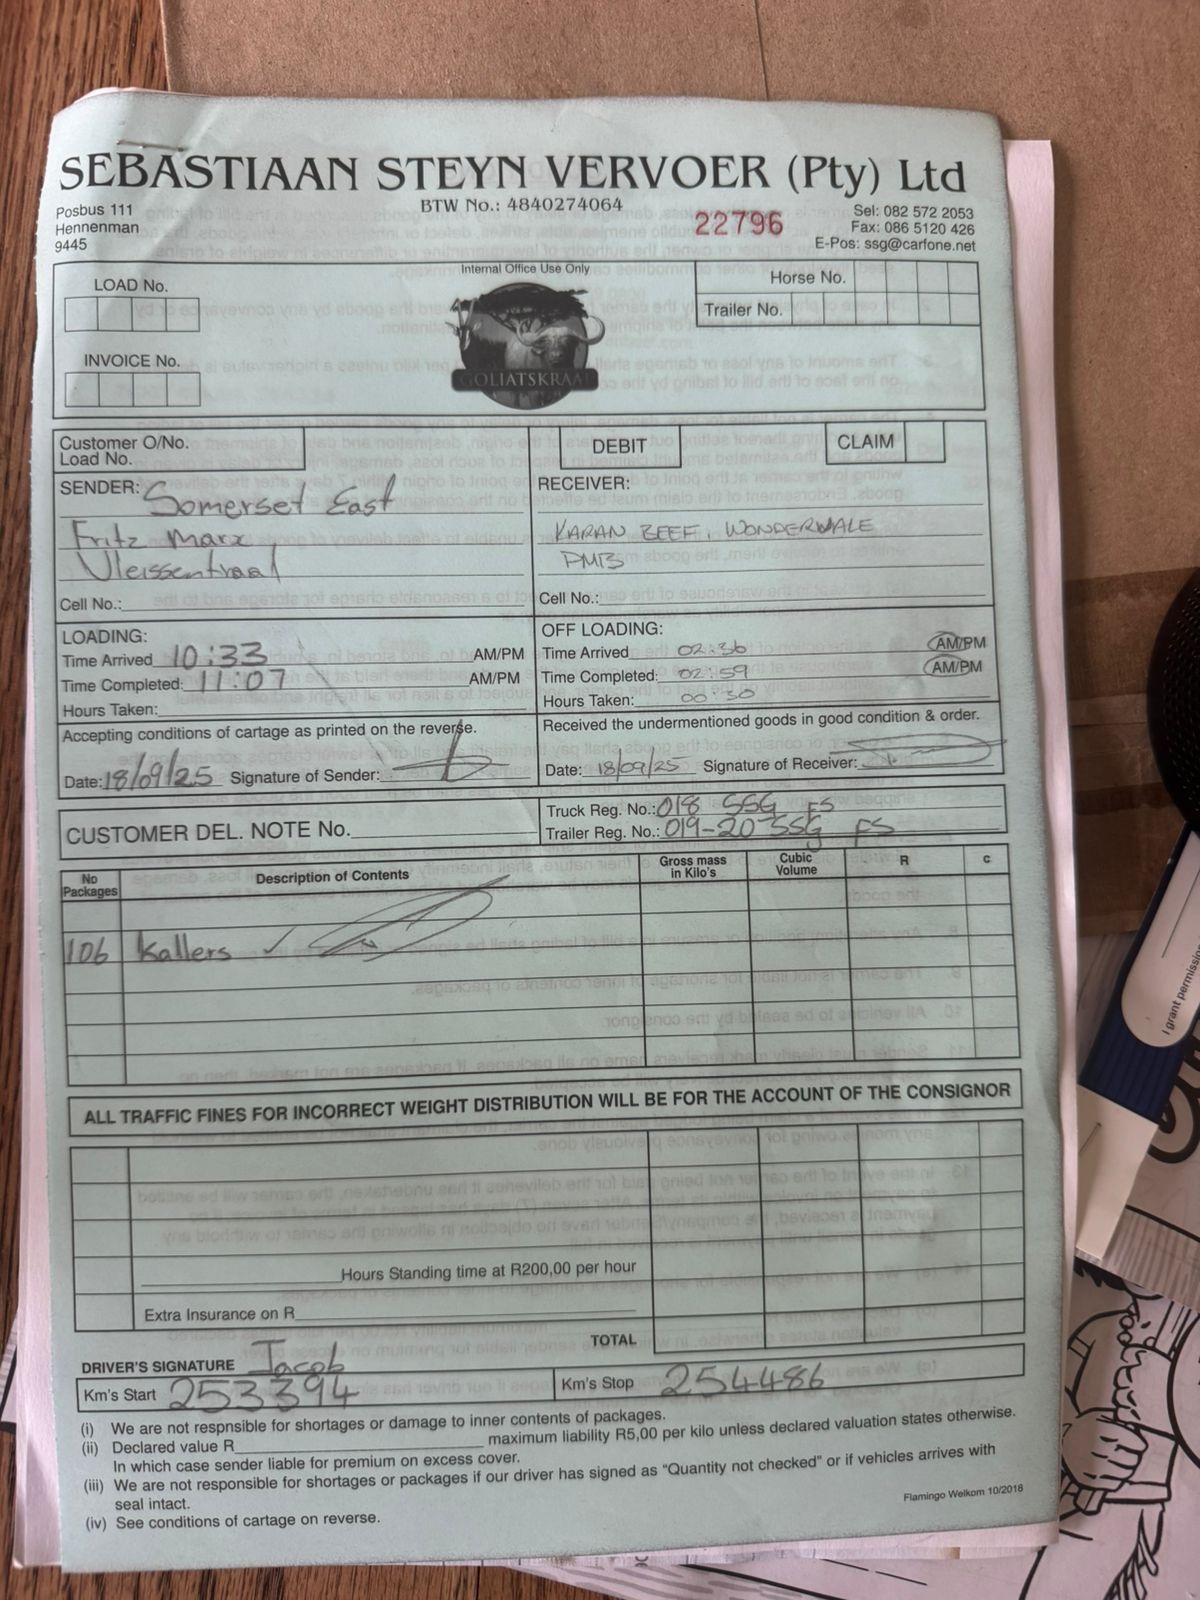 SEBASTIAAN STEYN VERVOER (Pty) Ltd
Posbus 111
Hennenman
9445
BTW No.: 4840274064
22796
Sel: 082 572 2053
Fax: 086 5120 426
E-Pos: ssg@carfone.net
Internal Office Use Only
LOAD No.
INVOICE No.
GOLIATSKRAAL
Horse No.
Trailer No.
Customer O/No.
Load No.
DEBIT
CLAIM
SENDER: Somerset East
Fritz Marx
Vleissentraal
Cell No.:
RECEIVER:
KARAN BEEF, WONDERVALE
PMB
Cell No.:
LOADING:
Time Arrived 10:33 AM/PM
Time Completed: 11:07 AM/PM
Hours Taken:
OFF LOADING:
Time Arrived 02:36 AM/PM
Time Completed: 02:59 AM/PM
Hours Taken: 00:30
Accepting conditions of cartage as printed on the reverse.
Date: 18/09/25 Signature of Sender:
Received the undermentioned goods in good condition & order.
Date: 18/09/25 Signature of Receiver:
CUSTOMER DEL. NOTE No.
Truck Reg. No.: 018 SSG FS
Trailer Reg. No.: 019-20 SSG FS
No Packages
Description of Contents
Gross mass in Kilo's
Cubic Volume
R
c
106 Kallers ✓
ALL TRAFFIC FINES FOR INCORRECT WEIGHT DISTRIBUTION WILL BE FOR THE ACCOUNT OF THE CONSIGNOR
Hours Standing time at R200,00 per hour
Extra Insurance on R
TOTAL
DRIVER'S SIGNATURE Jacob
Km's Start 253394
Km's Stop 254486
(i) We are not respnsible for shortages or damage to inner contents of packages.
(ii) Declared value R maximum liability R5,00 per kilo unless declared valuation states otherwise.
In which case sender liable for premium on excess cover.
(iii) We are not responsible for shortages or packages if our driver has signed as "Quantity not checked" or if vehicles arrives with
seal intact.
(iv) See conditions of cartage on reverse.
Flamingo Welkom 10/2018
I grant permission